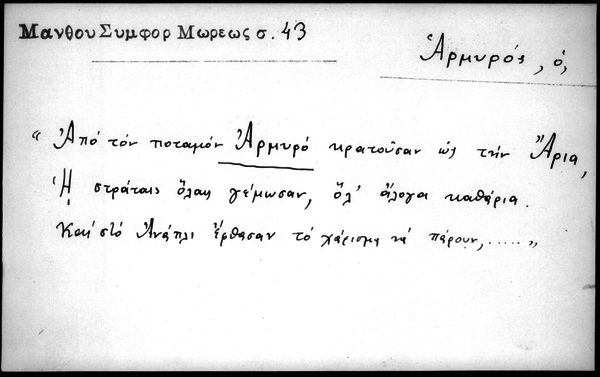 Μανθου Συμφορ Μωρεως σ. 43
Ἁρμυρός, ὁ,
“ Ἀπό τόν ποταμόν Ἁρμυρό κρατοῦσαν ὡς τήν Ἄρια,
Ἡ στράταις ὅλαις γέμωσαν, ὅλ' ἄλογα καθάρια.
Καί στό Ἀνάπλι ἔφθασαν τό χάρισμα νά πάρουν, ..... „